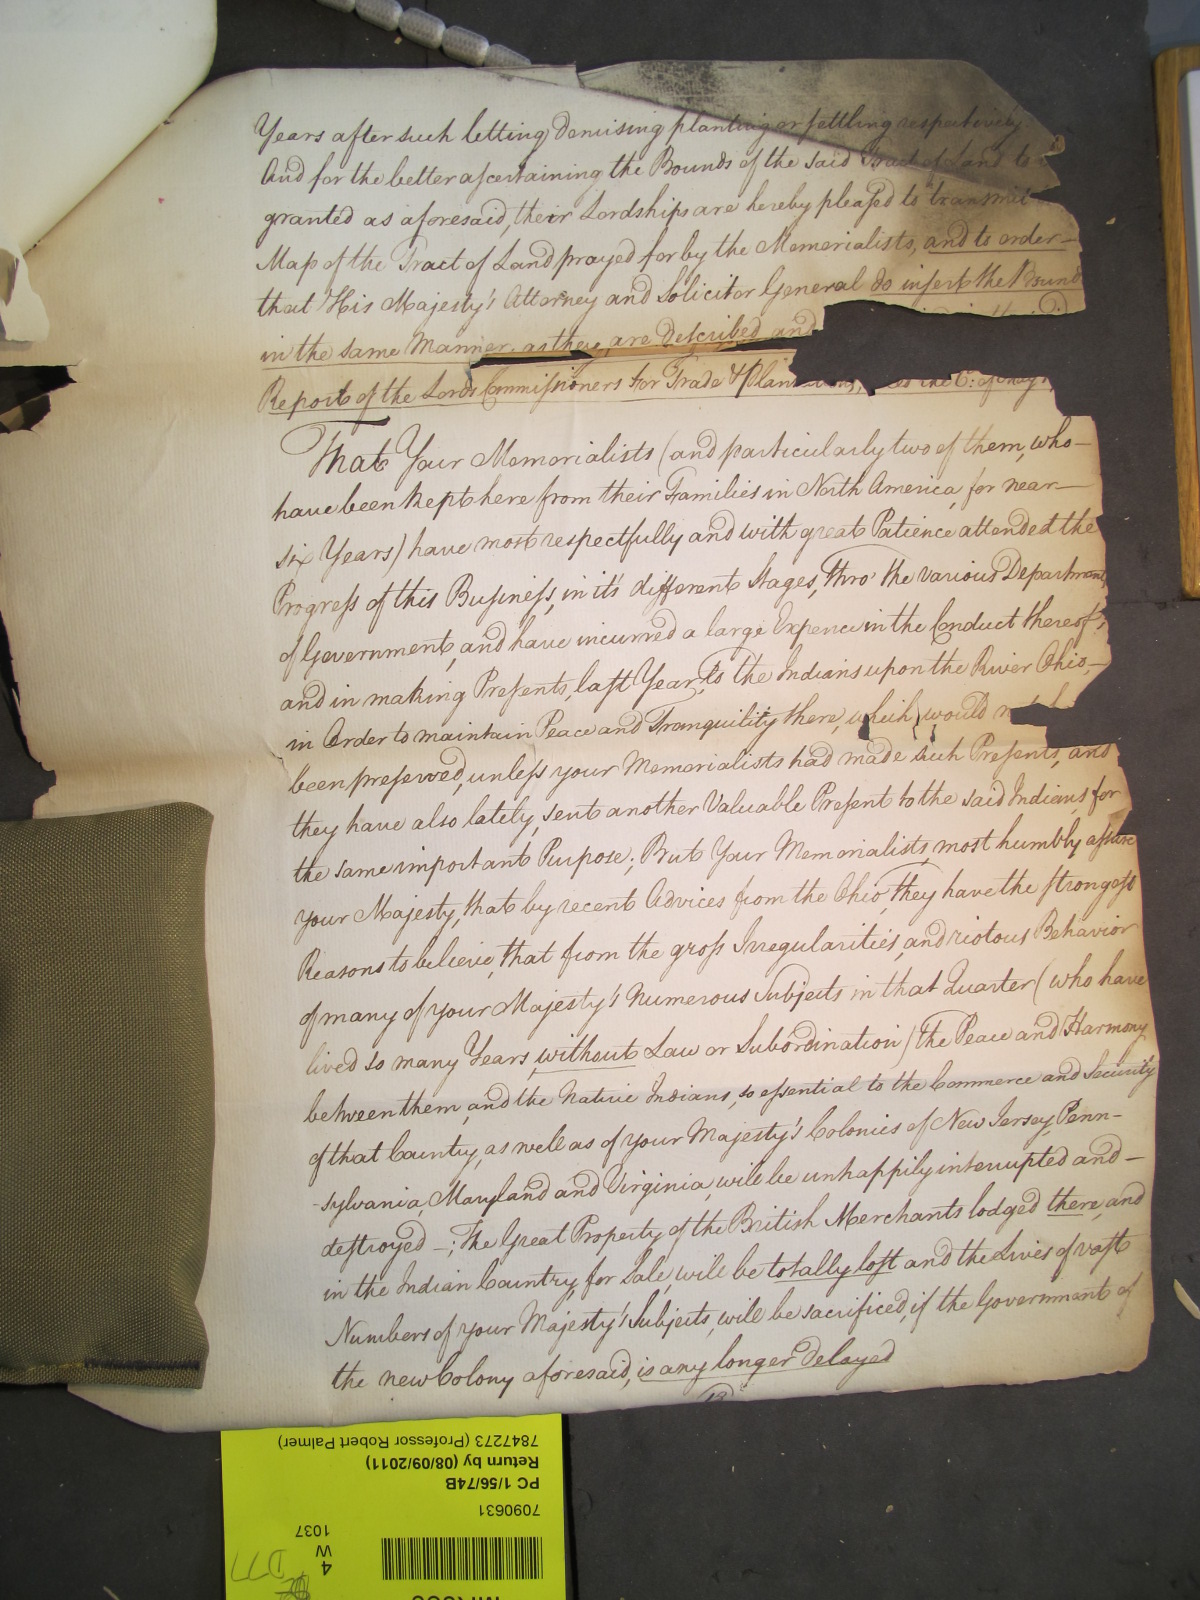 Years after such letting demising planting or settling respectively
And for the better ascertaining the Bounds of the said Tract of Land to
granted as aforesaid, their Lordships are hereby pleased to transmit
Map of the Tract of Land prayed for by the Memorialists, and to order —
that His Majesty's Attorney and Solicitor General do insert the Bound
in the same Manner, as they are described and
Report of the Lords Commissioners for Trade & Plan
That Your Memorialists (and particularly two of them, who —
have been kept here from their Families in North America, for near —
six Years) have most respectfully and with great Patience attended the
Progress of this Business, in it's different Stages, thro' the various Department
of Government, and have incurred a large Expence in the Conduct thereof,
and in making Presents, last Year, to the Indians upon the River Ohio, —
in Order to maintain Peace and Tranquility there, which would
been preserved, unless your Memorialists had made such Presents, and
they have also lately, sent another Valuable Present to the said Indians, for
the same important Purpose; But Your Memorialists, most humbly assure
your Majesty, that by recent Advices from the Ohio, they have the strongest
Reasons to believe, that from the gross Irregularities, and riotous Behavior
of many of your Majesty's numerous Subjects in that Quarter (who have
lived so many Years, without Law or Subordination) the Peace and Harmony
between them, and the Native Indians, so essential to the Commerce and Security
of that Country, as well as of your Majesty's Colonies of New Jersey, Penn-
-sylvania, Maryland and Virginia, will be unhappily interrupted and —
destroyed —; The Great Property of the British Merchants lodged there, and
in the Indian Country, for Sale, will be totally lost and the Lives of vast
Numbers of your Majesty's Subjects, will be sacrificed, if the Government of
the new Colony aforesaid, is any longer delayed
7847273 (Professor Robert Palmer)
Return by (08/09/2011)
PC 1/56/74B
7090631
1037
W
4
D77